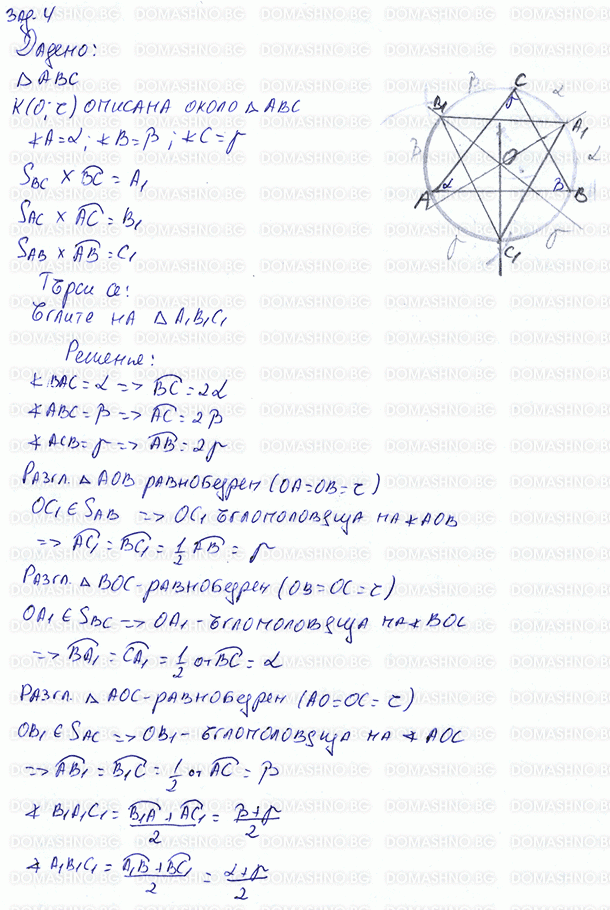 Зад. 4
Дадено:
△ ABC
K(O; r) описана около △ ABC
∢A = α; ∢B = β; ∢C = γ
S_BC × B͡C = A₁
S_AC × A͡C = B₁
S_AB × A͡B = C₁
Търси се:
ъглите на △ A₁B₁C₁
Решение:
∢BAC = α => B͡C = 2α
∢ABC = β => A͡C = 2β
∢ACB = γ => A͡B = 2γ
Разгл. △ AOB равнобедрен (OA = OB = r)
OC₁ ∈ S_AB => OC₁ ъглополовяща на ∢AOB
=> A͡C₁ = B͡C₁ = 1/2 A͡B = γ
Разгл. △ BOC - равнобедрен (OB = OC = r)
OA₁ ∈ S_BC => OA₁ - ъглополовяща на ∢BOC
=> B͡A₁ = C͡A₁ = 1/2 от B͡C = α
Разгл. △ AOC - равнобедрен (AO = OC = r)
OB₁ ∈ S_AC => OB₁ - ъглополовяща на ∢AOC
=> A͡B₁ = B₁͡C = 1/2 от A͡C = β
∢ B₁A₁C₁ = (B₁͡A + A͡C₁)/2 = (β + γ)/2
∢ A₁B₁C₁ = (A₁͡B + B͡C₁)/2 = (α + γ)/2
C
γ
β
α
B₁
A₁
O
β
α
A
α
β
B
γ
γ
C₁
DOMASHNO.BG